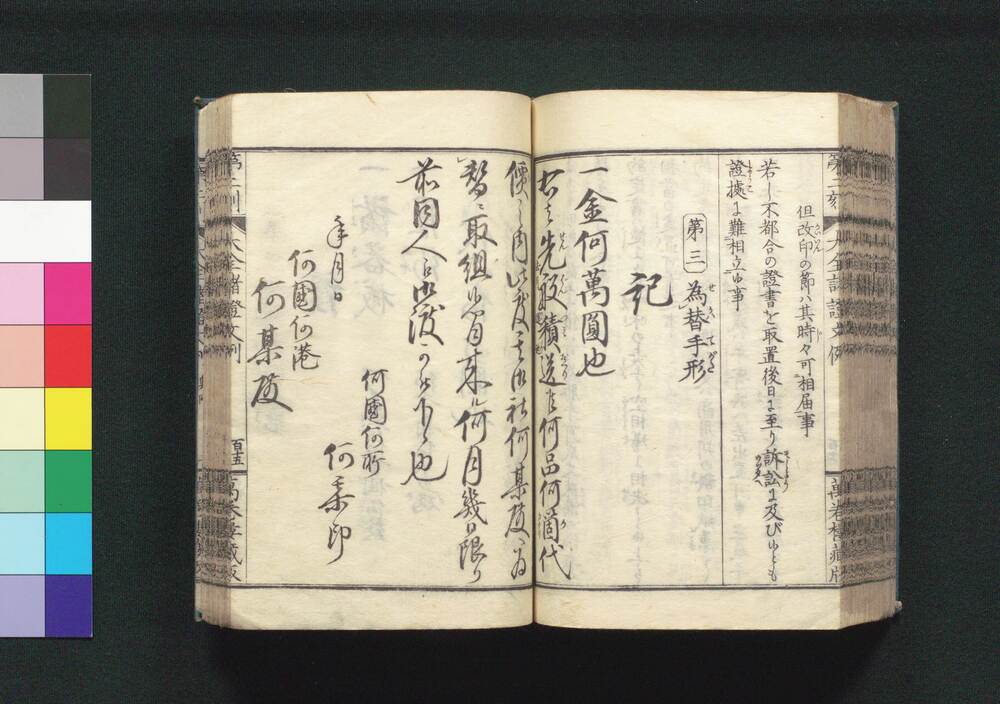 但改印の節ハ其時々可相届事
若し不都合の證書を取置後日に至り訴訟に及びゆとも
證據に難相立ゆ事
第三 為替手形
記
一金何萬圓也
右者先般積送候何品何箇代
價之内此度其御社何某殿へ為
替取組候間来ル何月幾日限り
前同人へ御渡可被下候也
何國何所
年月日 何某印
何國何港
何某殿
百十五